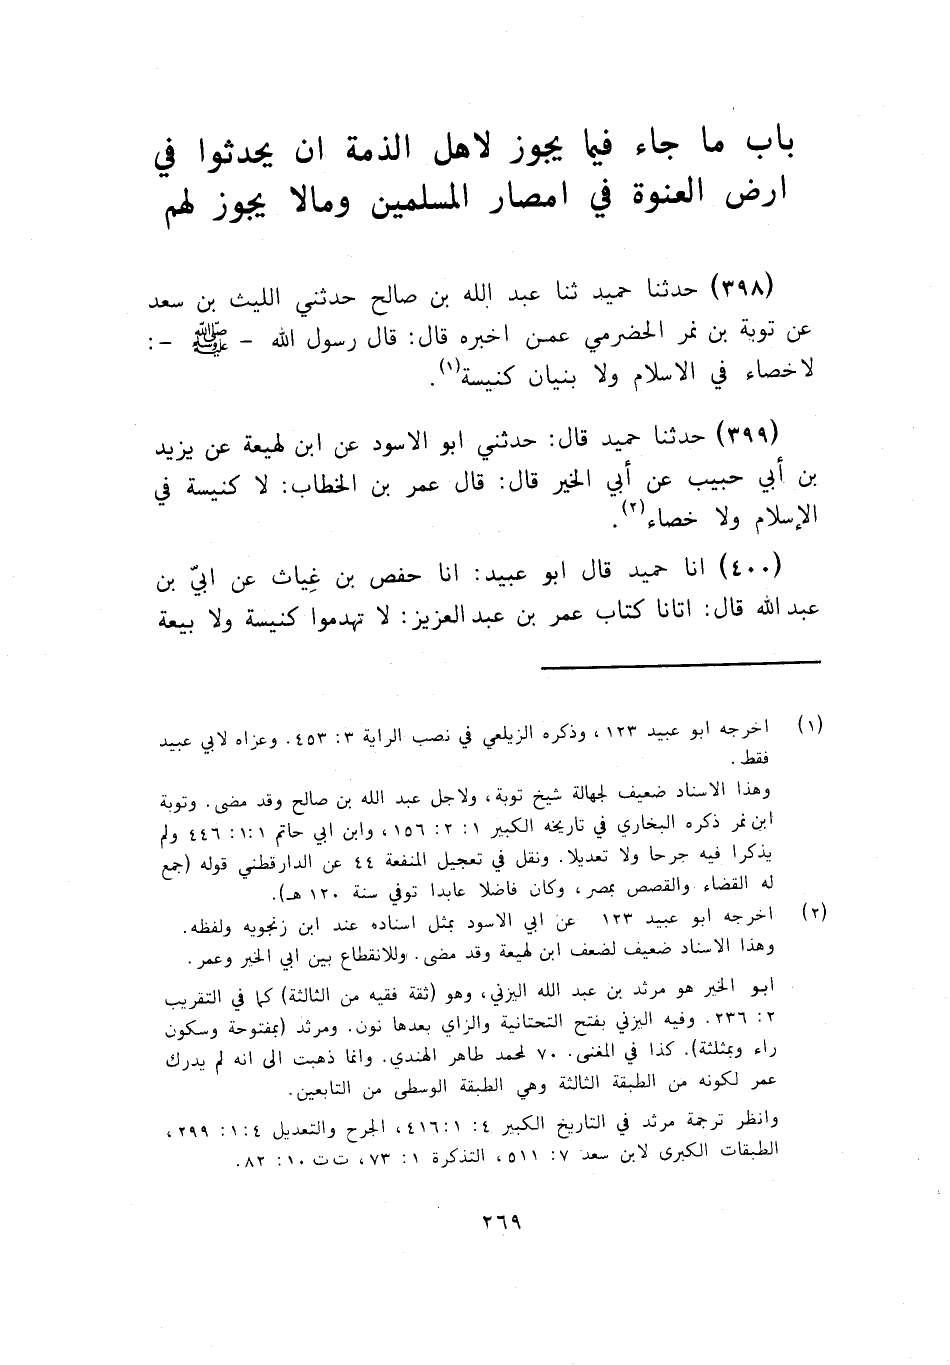 باب ما جاء فيما يجوز لاهل الذمة ان يحدثوا في
ارض العنوة في امصار المسلمين ومالا يجوز لهم
(٣٩٨) حدثنا حميد ثنا عبد الله بن صالح حدثني الليث بن سعد
عن توبة بن نمر الحضرمي عمن اخبره قال: قال رسول الله - ﷺ -:
لاخصاء في الاسلام ولا بنيان كنيسة(١).
(٣٩٩) حدثنا حميد قال: حدثني ابو الاسود عن ابن لهيعة عن يزيد
بن أبي حبيب عن أبي الخير قال: قال عمر بن الخطاب: لا كنيسة في
الإسلام ولا خصاء(٢).
(٤٠٠) انا حميد قال ابو عبيد: انا حفص بن غِياث عن ابيّ بن
عبد الله قال: اتانا كتاب عمر بن عبد العزيز: لا تهدموا كنيسة ولا بيعة
(١) اخرجه ابو عبيد ١٢٣، وذكره الزيلعي في نصب الراية ٣: ٤٥٣. وعزاه لابي عبيد
فقط.
وهذا الاسناد ضعيف لجهالة شيخ توبة، ولاجل عبد الله بن صالح وقد مضى. وتوبة
ابن نمر ذكره البخاري في تاريخه الكبير ١: ٢: ١٥٦، وابن ابي حاتم ١:١: ٤٤٦ ولم
يذكرا فيه جرحا ولا تعديلا. ونقل في تعجيل المنفعة ٤٤ عن الدارقطني قوله (جمع
له القضاء والقصص بمصر، وكان فاضلا عابدا توفي سنة ١٢٠ هـ).
(٢) اخرجه ابو عبيد ١٢٣ عن ابي الاسود بمثل اسناده عند ابن زنجويه ولفظه.
وهذا الاسناد ضعيف لضعف ابن لهيعة وقد مضى. وللانقطاع بين ابي الخير وعمر.
ابو الخير هو مرثد بن عبد الله اليزني، وهو (ثقة فقيه من الثالثة) كما في التقريب
٢: ٢٣٦. وفيه اليزني بفتح التحتانية والزاي بعدها نون. ومرثد (بمفتوحة وسكون
راء وبمثلثة). كذا في المغنى. ٧٠ لمحمد طاهر الهندي. وانما ذهبت الى انه لم يدرك
عمر لكونه من الطبقة الثالثة وهي الطبقة الوسطى من التابعين.
وانظر ترجمة مرثد في التاريخ الكبير ٤: ٤١٦:١، الجرح والتعديل ٤:١: ٢٩٩،
الطبقات الكبرى لابن سعد ٧: ٥١١، التذكرة ١: ٧٣، ت ت ١٠: ٨٢.
٢٦٩